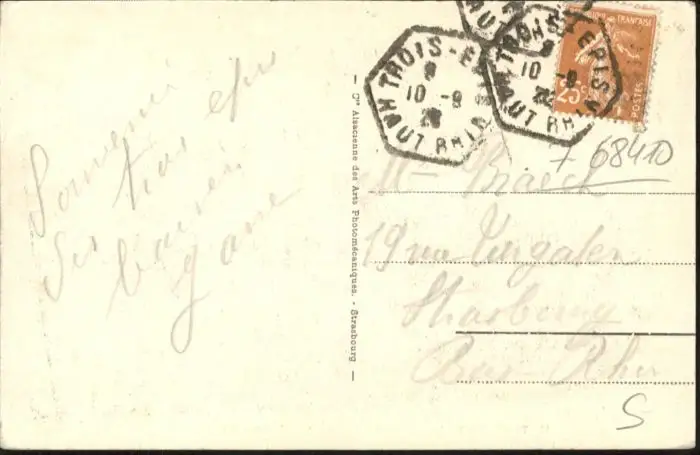 Souvenir
des trois epis
baiser
TROIS-E
9
10 -9
28
HAUT RHIN
TROIS-EPIS
10 -9
HAUT RHIN
FRANÇAISE
25c
POSTES
+ 68410
19 rue
Strasbourg
Bas-Rhin
S
— Cie Alsacienne des Arts Photomécaniques. - Strasbourg —